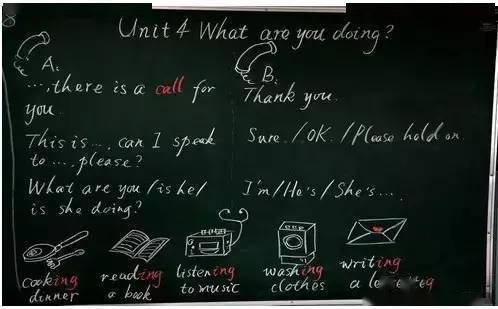 Unit 4 What are you doing?
A:
...., there is a call for
you.
This is ...., can I speak
to ...., please?
What are you / is he /
is she doing?
B:
Thank you.
Sure. / OK. / Please hold on.
I'm / He's / She's ....
cooking
dinner
reading
a book
listening
to music
washing
clothes
writing
a